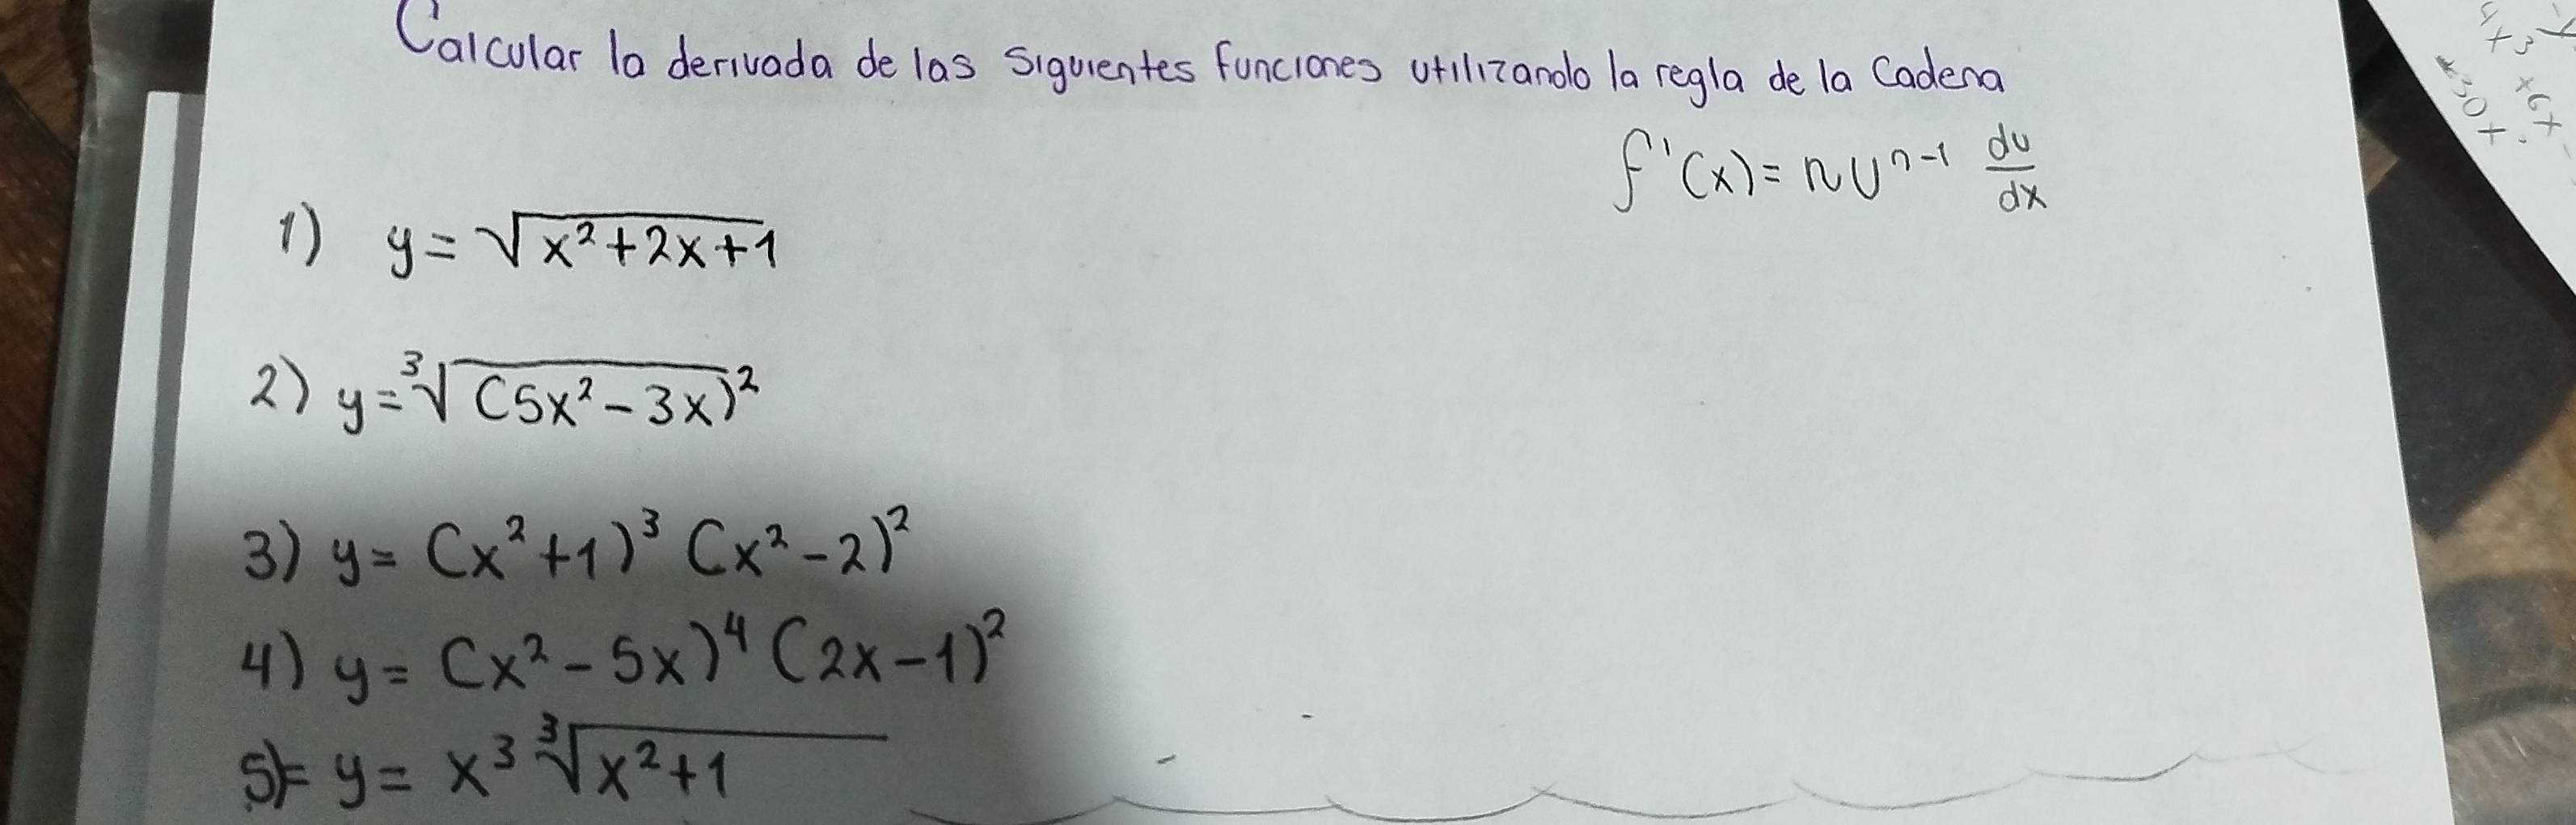 Calcular la derivada de las siguientes funciones utilizando la regla de la Cadena
f'(x) = nu^{n-1} du/dx
1) y = √(x²+2x+1)
2) y = ³√((5x²-3x)²)
3) y = (x²+1)³ (x²-2)²
4) y = (x²-5x)⁴ (2x-1)²
5)= y = x³ ³√(x²+1)